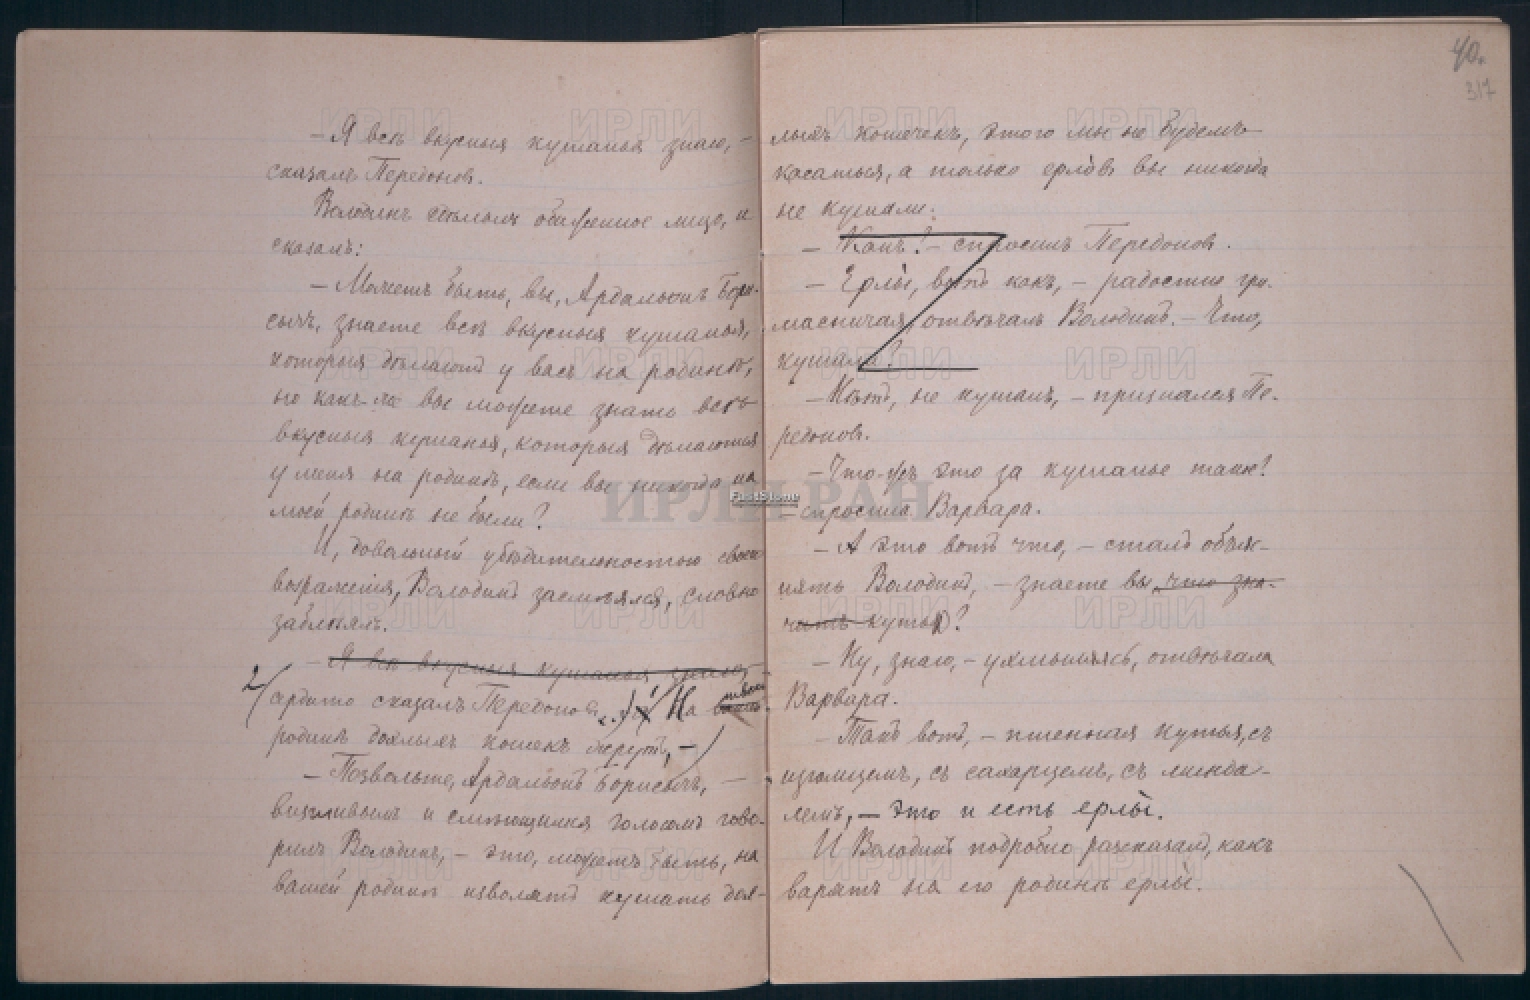 — Я всѣ вкусныя кушанья знаю, —
сказалъ Передоновъ.
Володинъ сдѣлалъ обиженное лицо, и
сказалъ:
— Можетъ быть, вы, Ардальонъ Бори-
сычъ, знаете всѣ вкусныя кушанья,
которыя дѣлаютъ у васъ на родинѣ,
но какъ-же вы можете знать всѣ
вкусныя кушанья, которыя дѣлаются
у меня на родинѣ, если вы никогда на
моей родинѣ не были?
И, довольный убѣдительностью своего
возраженія, Володинъ засмѣялся, словно
заблеялъ.
— Я всѣ вкусныя кушанья знаю,
2 сердито сказалъ Передоновъ. На
родинѣ дохлыхъ кошекъ жрутъ, —
— Позвольте, Ардальонъ Борисычъ, —
визгливымъ и смѣющимся голосомъ гово-
рилъ Володинъ, — это, можетъ быть, на
вашей родинѣ изволятъ кушать дох-
40.
317
лыхъ кошечекъ, этого мы не будемъ
касаться, а только ерловъ вы никогда
не кушали.
— Какъ? — спросилъ Передоновъ.
— Ерлы, вотъ какъ, — радостно гри-
масничая, отвѣчалъ Володинъ. — Что,
кушали?
— Нѣтъ, не кушалъ, — признался Пе-
редоновъ.
— Что-жъ это за кушанье такое?
— спросила Варвара.
— А это вотъ что, — сталъ объяс-
нять Володинъ, — знаете вы, что зна-
читъ кутью?
— Ну, знаю, — ухмыляясь, отвѣчала
Варвара.
— Такъ вотъ, — пшенная кутья, съ
изюмцемъ, съ сахарцемъ, съ минда-
лемъ, — это и есть ерлы.
И Володинъ подробно разсказалъ, какъ
варятъ на его родинѣ ерлы.
ИРЛИ РАН
FastStone